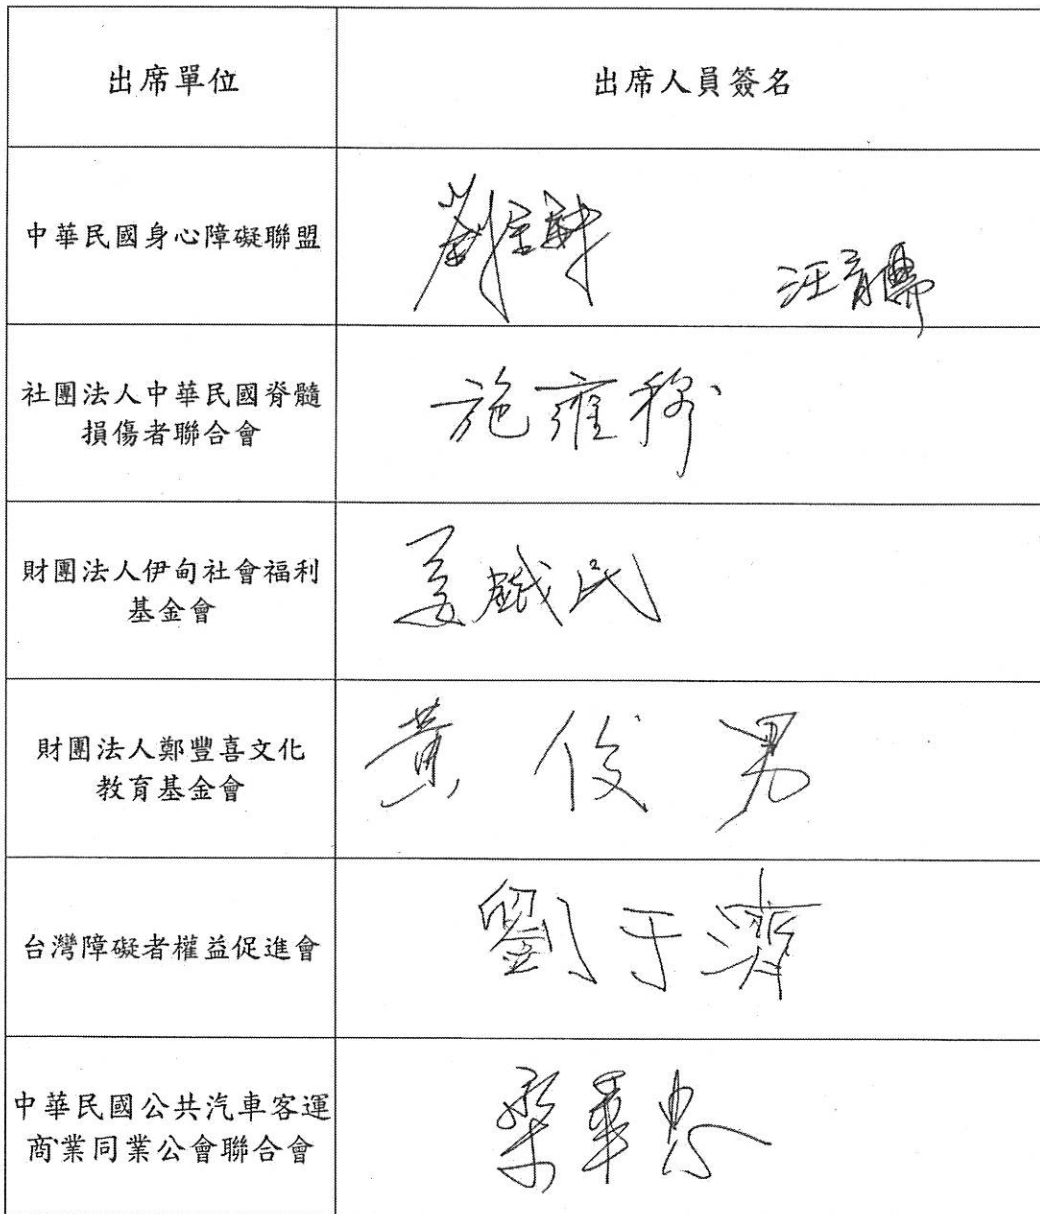 出席單位
出席人員簽名
中華民國身心障礙聯盟
劉金鐘
汪育儒
社團法人中華民國脊髓
損傷者聯合會
施雍穆
財團法人伊甸社會福利
基金會
財團法人鄭豐喜文化
教育基金會
黃俊男
台灣障礙者權益促進會
劉于濟
中華民國公共汽車客運
商業同業公會聯合會